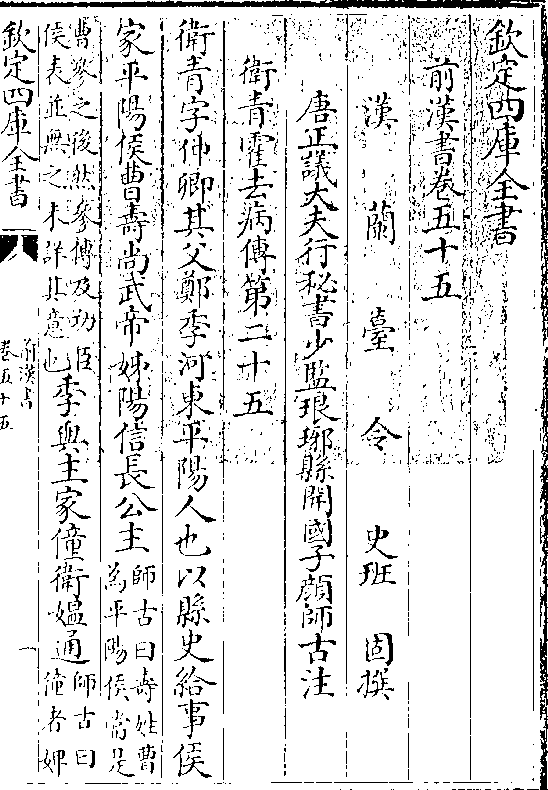 欽定四庫全書
前漢書卷五十五
漢蘭臺令史班固撰
唐正議大夫行秘書少監琅琊縣開國子顔師古注
衛青霍去病傳第二十五
衛青字仲卿其父鄭季河東平陽人也以縣吏給事侯
家平陽侯曹壽尚武帝姊陽信長公主師古曰壽姓曹為平陽侯當是
曹參之後然參傳及功臣侯表並無之未詳其意也季與主家僮衛媼通師古曰僮者婢
欽定四庫全書
前漢書
卷五十五
一